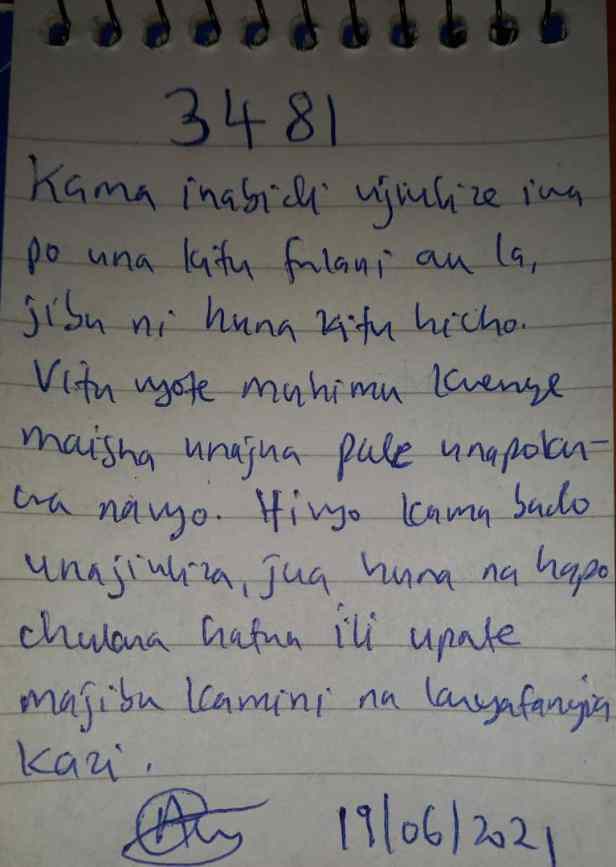 3481
Kama inabidi ujiulize iwa
po una kitu fulani au la,
jibu ni huna kitu hicho.
Vitu vyote muhimu kwenye
maisha unajua pale unapoku-
wa navyo. Hivyo kama bado
unajiuliza, jua huna na hapo
chukua hatua ili upate
majibu kamini na kuyafanyia
kazi.
19/06/2021